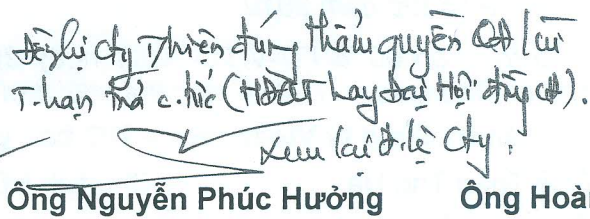 Đề nghị cty Thiện đúng thẩm quyền QĐ lùi
T.hạn trả c.tức (HĐQT hay Đại Hội đồng cđ).
Xem lại đ.lệ Cty.
Ông Nguyễn Phúc Hưởng Ông Hoà